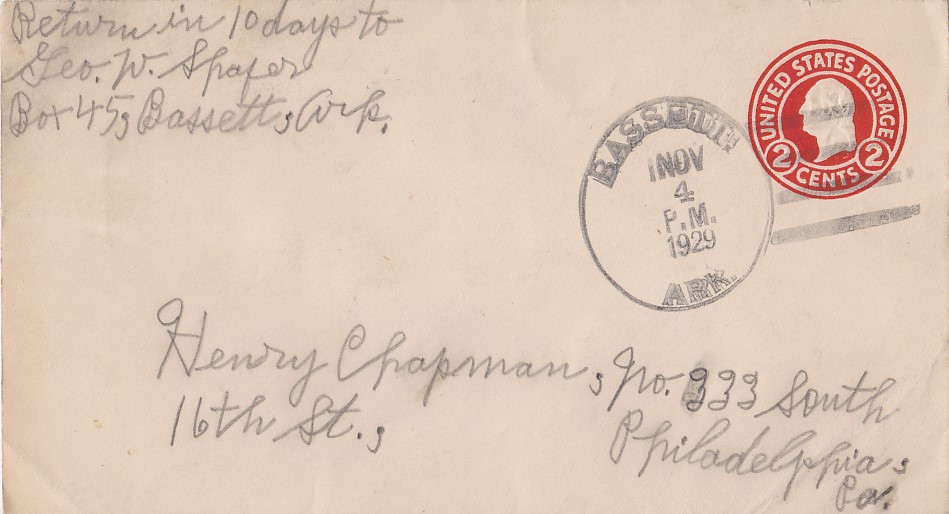 Return in 10 days to
Geo. W. Spafer
Box 45, Bassett, Ark.
UNITED STATES POSTAGE
2 CENTS 2
BASSETT
NOV
4
P.M.
1929
ARK.
Henry Chapman, No. 333 South
16th St.,
Philadelphia,
Pa.